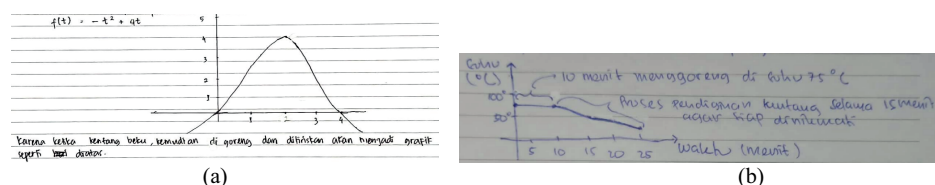 f(t) = -t² + 4t
5
4
3
2
1
0 1 2 3 4
Karena ketika kentang beku, kemudian di goreng dan ditiriskan akan menjadi grafik
seperti diatas.
(a)
Suhu
(°C)
10 menit menggoreng di suhu 75°C
100°
Proses pendinginan kentang selama 15 menit
agar siap dinikmati
50°
5 10 15 20 25 Waktu (menit)
(b)